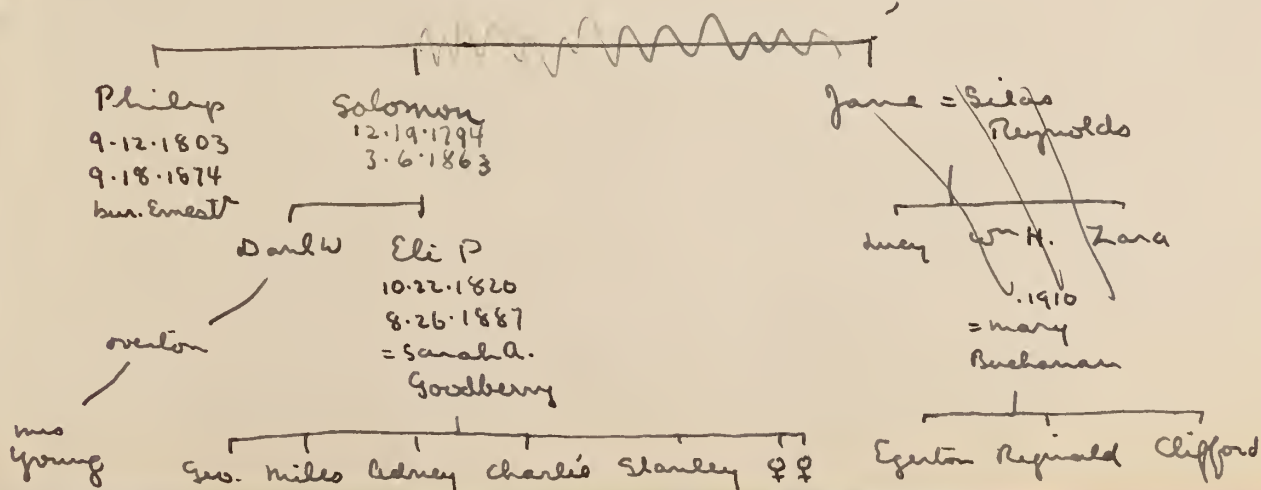 Philip
9.12.1803
9.18.1874
bur. Ernest
Solomon
12.19.1794
3.6.1863
Jane = Silas
Reynolds
Danl W
Eli P
10.22.1820
8.26.1887
= Sarah A.
Goodberry
Lucy Wm H. Zara
.1910
= Mary
Buchanan
overton
mrs
young
Geo. Miles Adney Charlie Stanley ♀ ♀
Egerton Reginald Clifford